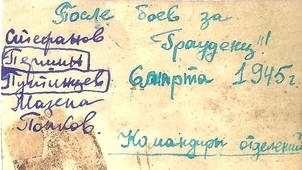 После боев за
Грауденц"!
6 марта 1945 г.
Стефанов
Першин
Пунтинцев
Мазепа
Попков.
Командиры отделений